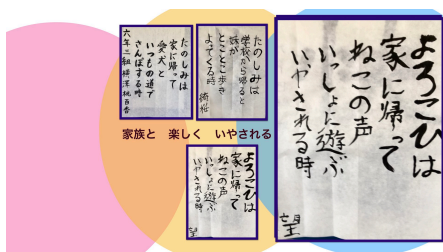 たのしみは
家に帰って
愛犬と
いつもの道で
さんぽする時
たのしみは
学校から帰ると
妹が
とことこ歩き
よってくる時
家族と 楽しく いやされる
よろこびは
家に帰って
ねこの声
いっしょに遊ぶ
いやされる時
望
よろこびは
家に帰って
ねこの声
いっしょに遊ぶ
いやされる時
望